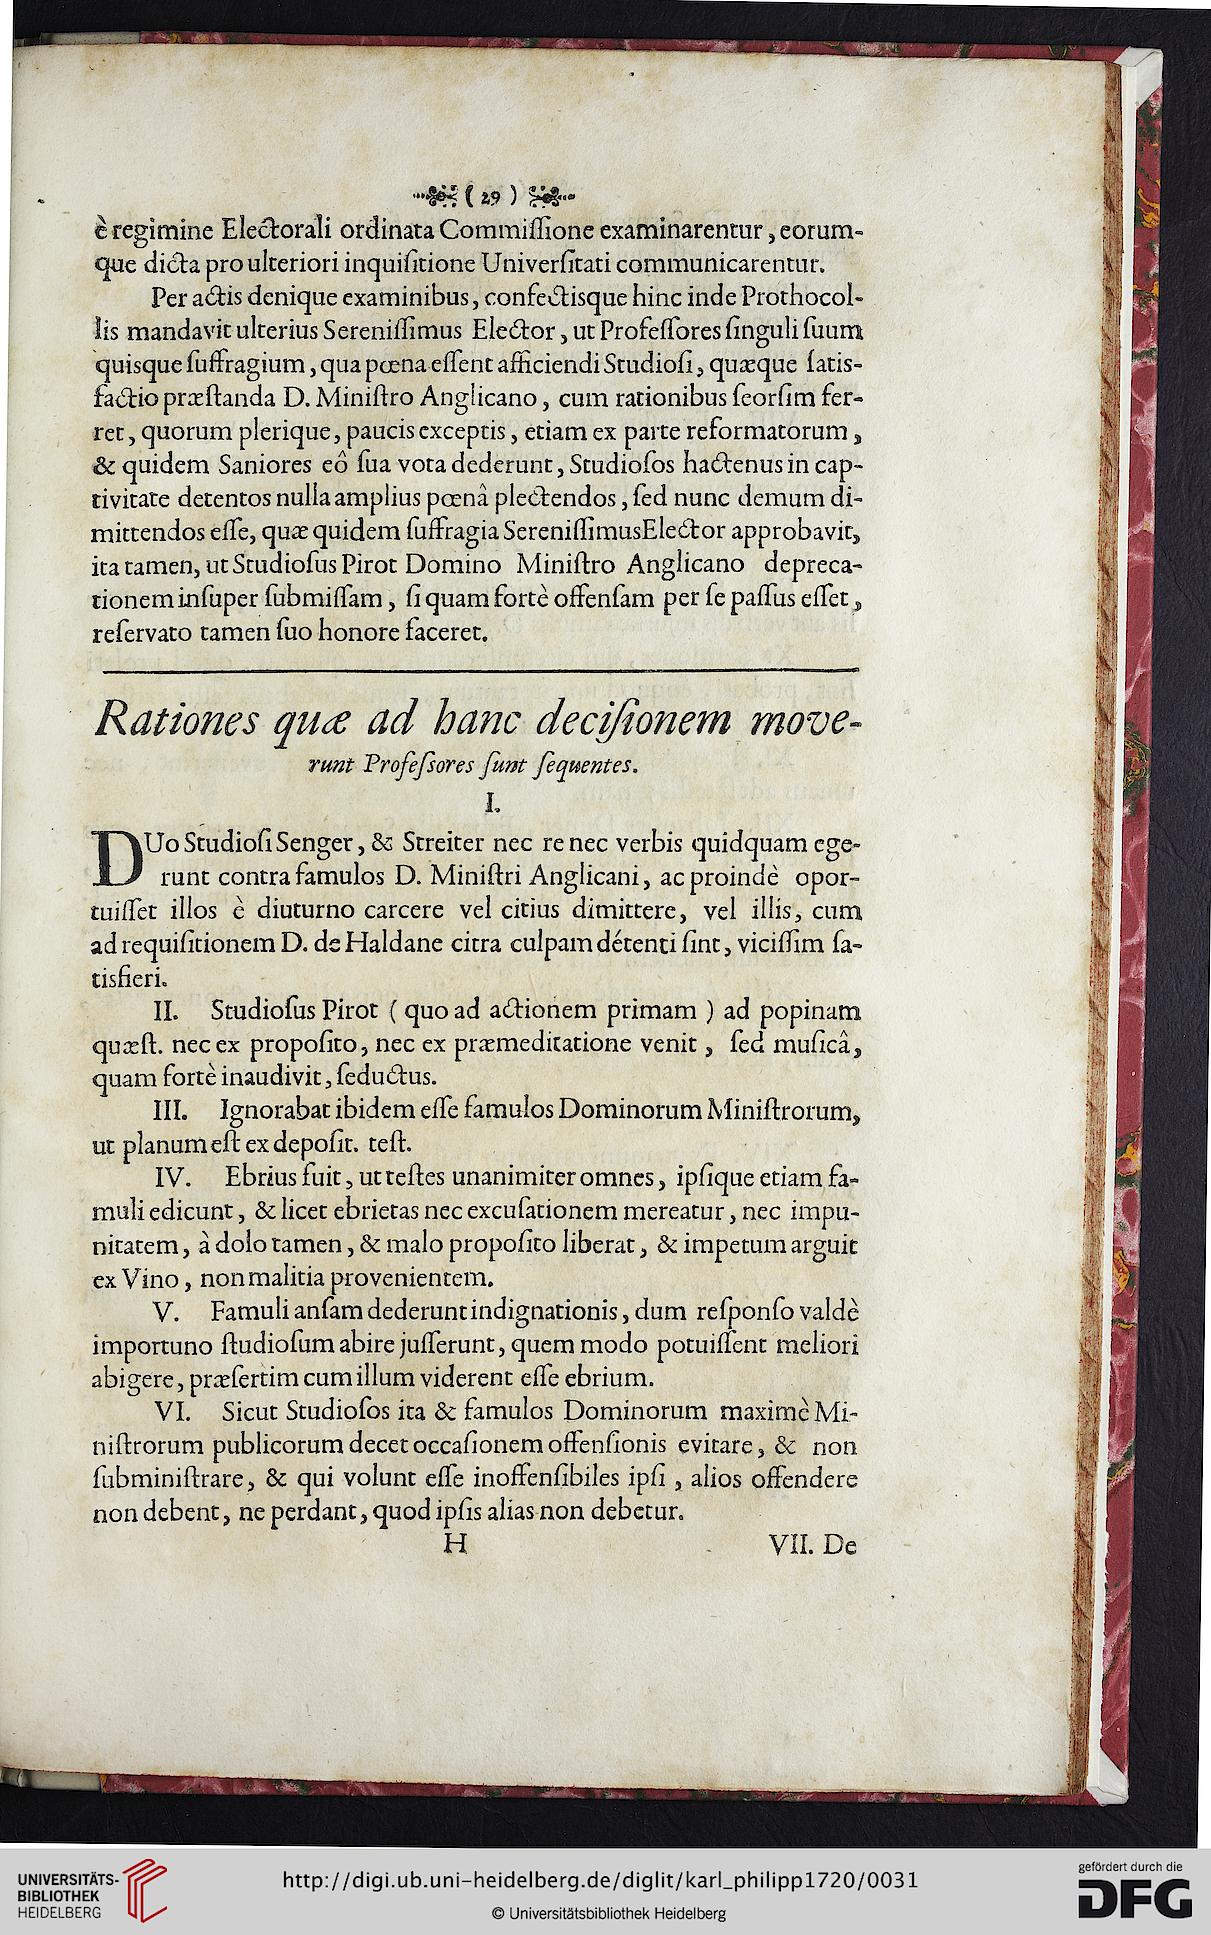 ( 29 )
è regimine Electorali ordinata Commiſſione examinarentur, eorum-
que dicta pro ulteriori inquiſitione Univerſitati communicarentur.
Per actis denique examinibus, confectisque hinc inde Prothocol-
lis mandavit ulterius Sereniſſimus Elector, ut Profeſſores ſinguli ſuum
quisque ſuffragium, qua pœna eſſent afficiendi Studioſi, quæque ſatis-
factio præſtanda D. Miniſtro Anglicano, cum rationibus ſeorſim fer-
ret, quorum plerique, paucis exceptis, etiam ex parte reformatorum,
& quidem Saniores eô ſua vota dederunt, Studioſos hactenus in cap-
tivitate detentos nulla amplius pœnâ plectendos, ſed nunc demum di-
mittendos eſſe, quæ quidem ſuffragia SereniſſimusElector approbavit,
ita tamen, ut Studioſus Pirot Domino Miniſtro Anglicano depreca-
tionem inſuper ſubmiſſam, ſi quam fortè offenſam per ſe paſſus eſſet,
reſervato tamen ſuo honore faceret.
Rationes quæ ad hanc deciſionem move-
runt Profeſsores ſunt ſequentes.
I.
DUo Studioſi Senger, & Streiter nec re nec verbis quidquam ege-
runt contra famulos D. Miniſtri Anglicani, ac proindè opor-
tuiſſet illos è diuturno carcere vel citius dimittere, vel illis, cum
ad requiſitionem D. de Haldane citra culpam détenti ſint, viciſſim ſa-
tisfieri.
II. Studioſus Pirot ( quo ad actionem primam ) ad popinam
quæſt. nec ex propoſito, nec ex præmeditatione venit, ſed muſicâ,
quam fortè inaudivit, ſeductus.
III. Ignorabat ibidem eſſe famulos Dominorum Miniſtrorum,
ut planum eſt ex depoſit. teſt.
IV. Ebrius fuit, ut teſtes unanimiter omnes, ipſique etiam fa-
muli edicunt, & licet ebrietas nec excuſationem mereatur, nec impu-
nitatem, à dolo tamen, & malo propoſito liberat, & impetum arguit
ex Vino, non malitia provenientem.
V. Famuli anſam dederunt indignationis, dum reſponſo valdè
importuno ſtudioſum abire juſſerunt, quem modo potuiſſent meliori
abigere, præſertim cum illum viderent eſſe ebrium.
VI. Sicut Studioſos ita & famulos Dominorum maximè Mi-
niſtrorum publicorum decet occaſionem offenſionis evitare, & non
ſubminiſtrare, & qui volunt eſſe inoffenſibiles ipſi, alios offendere
non debent, ne perdant, quod ipſis alias non debetur.
H VII. De
UNIVERSITÄTS-
BIBLIOTHEK
HEIDELBERG
http://digi.ub.uni-heidelberg.de/diglit/karl_philipp1720/0031
© Universitätsbibliothek Heidelberg
gefördert durch die
DFG